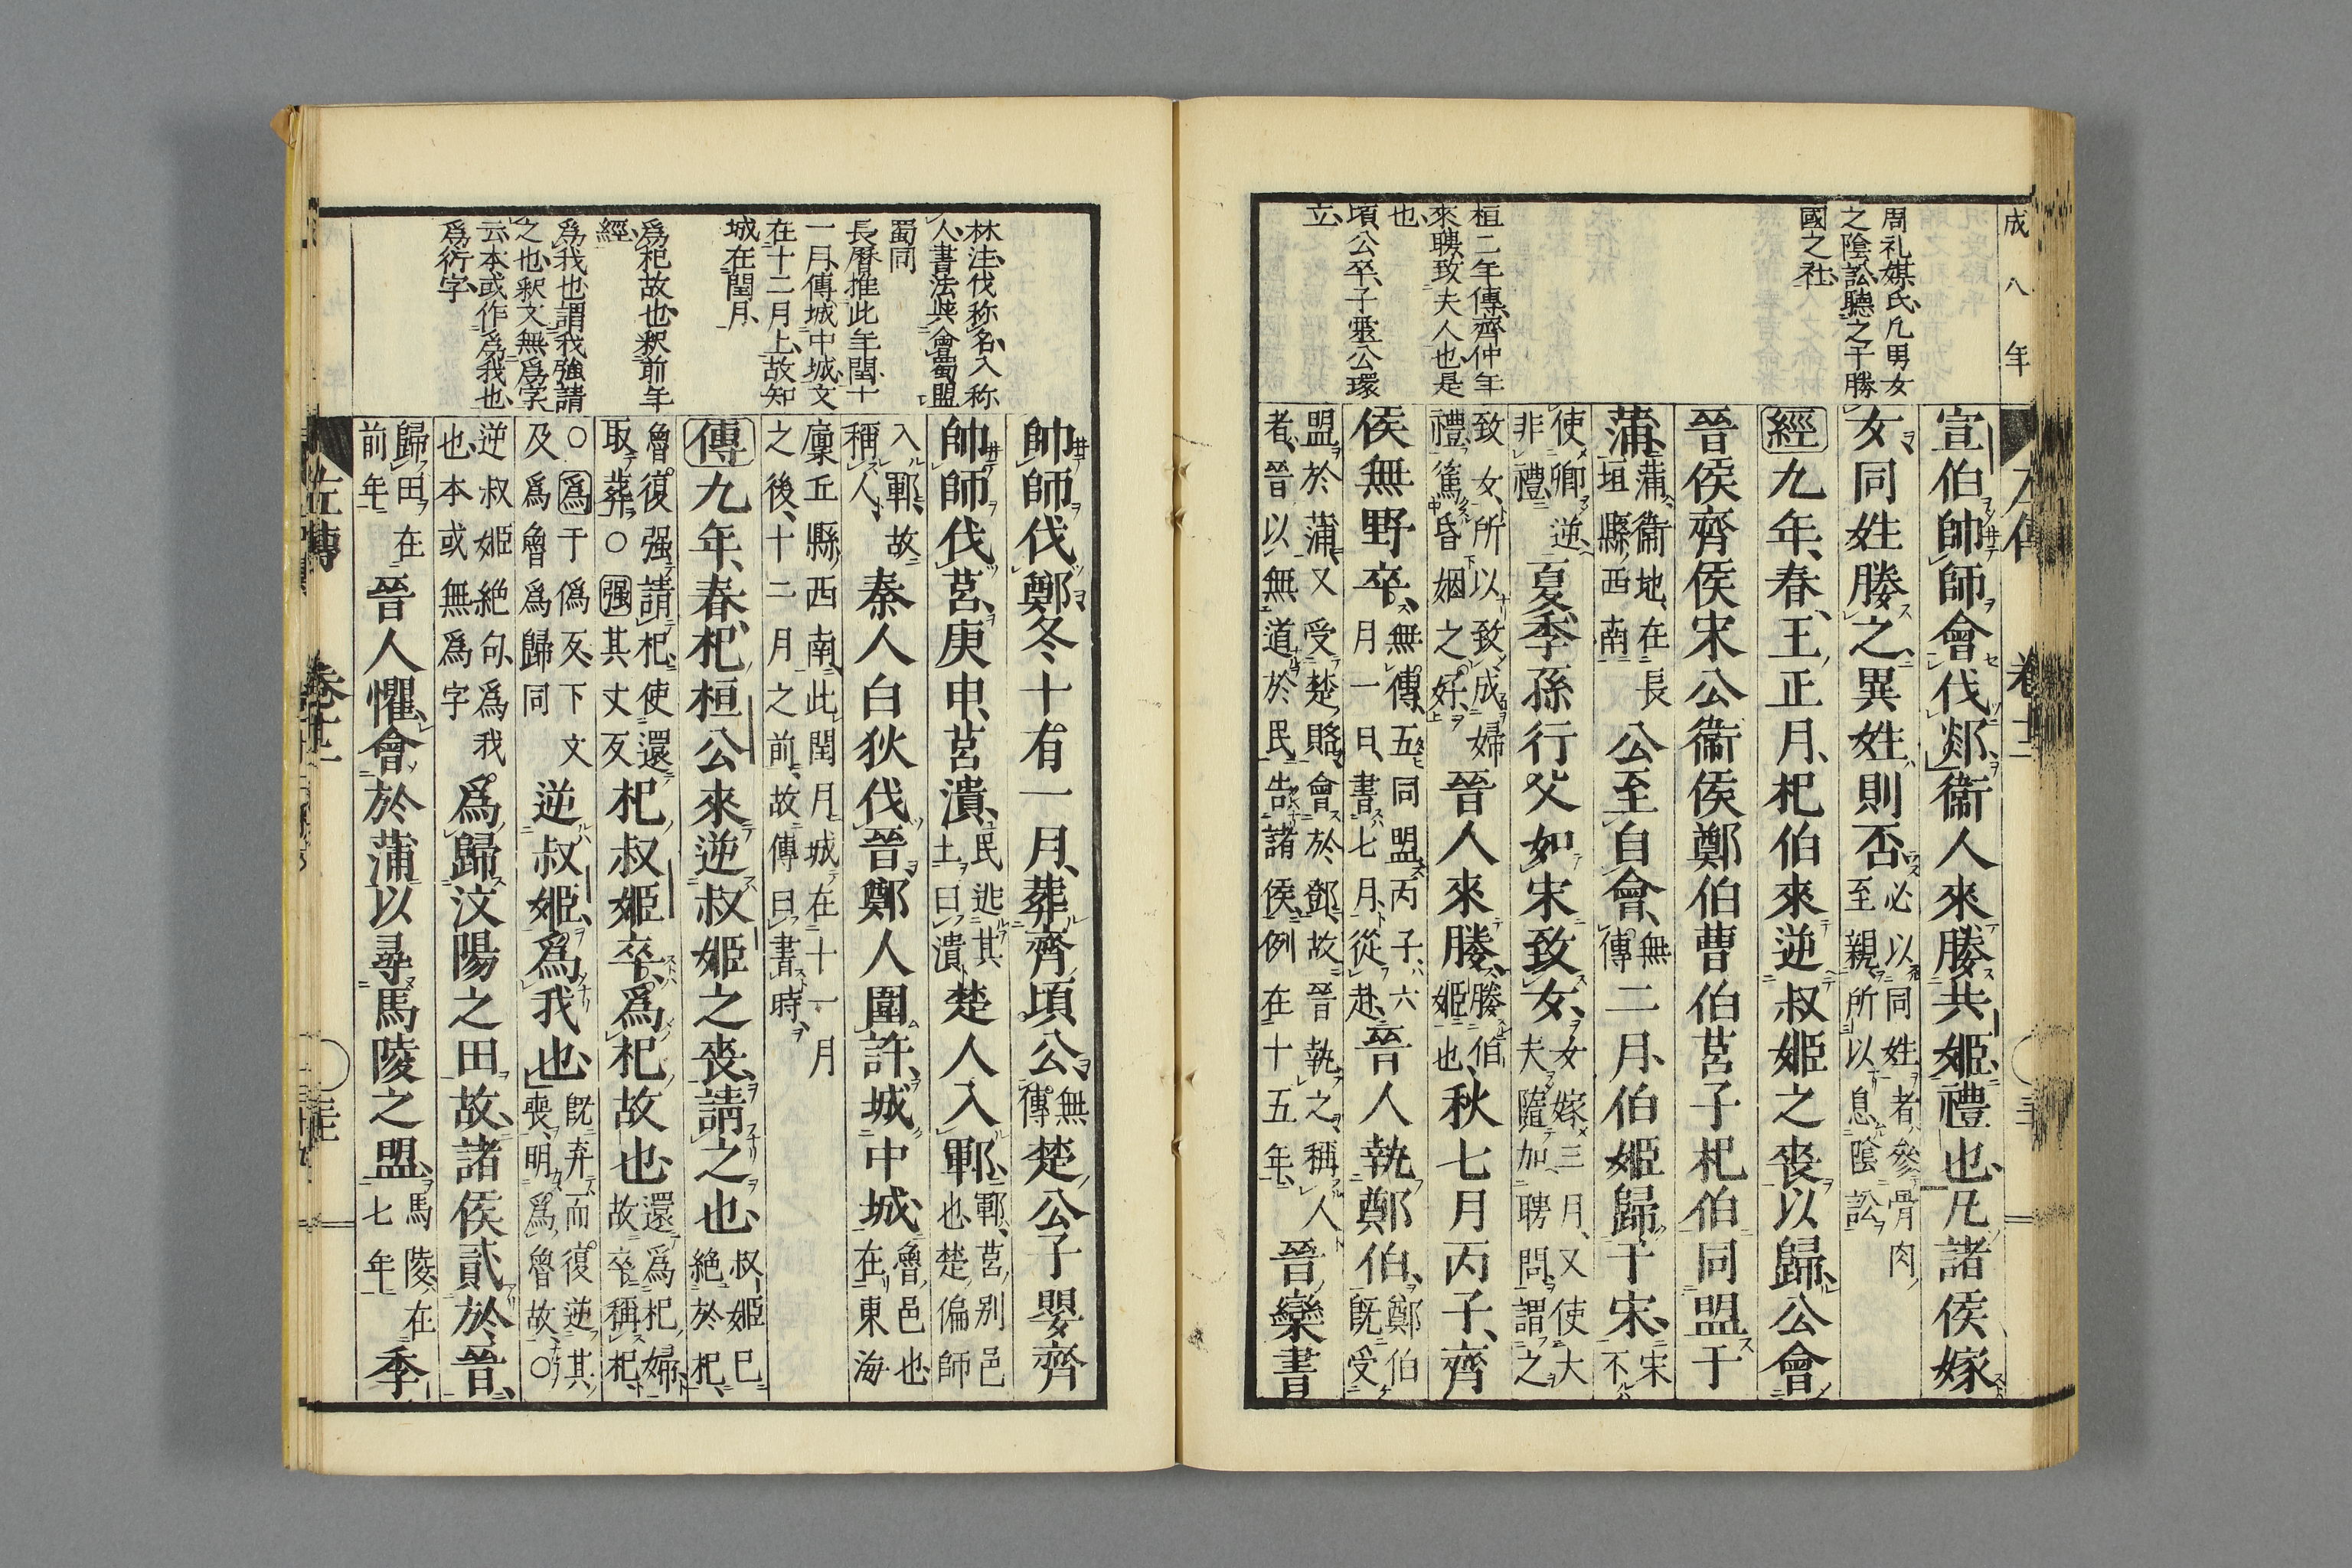 成八年
周礼媒氏凡男女
之陰訟聽之于勝
國之社
桓二年傳齊仲年
來聘致夫人也是
也
頃公卒子靈公環
立
宣伯帥師會伐郯衞人來媵共姬禮也凡諸侯嫁
女同姓媵之異姓則否必以同姓者參骨肉至親所以息陰訟
經九年春王正月杞伯來逆叔姬之喪以歸公會
晉侯齊侯宋公衞侯鄭伯曹伯莒子杞伯同盟于
蒲蒲衞地在長垣縣西南公至自會無傳二月伯姬歸于宋宋不
使卿逆非禮夏季孫行父如宋致女女嫁三月又使大夫隨加聘問謂之
致女所以致成婦禮篤昏姻之好晉人來媵媵伯姬也秋七月丙子齊
侯無野卒無傳五同盟丙子六月一日書七月從赴晉人執鄭伯鄭伯既受
盟於蒲又受楚賂會於鄧故晉執之稱人者晉以無道於民告諸侯例在十五年晉欒書
林注伐称名入称
人書法與會蜀盟
蜀同
長曆推此年閏十
一月傳城中城文
在十二月上故知
城在閏月
爲杞故也釈前年
經
爲我也謂我強請
之也釈文無爲字
云本或作爲我也
爲衍字
帥師伐鄭冬十有一月葬齊頃公無傳楚公子嬰齊
帥師伐莒庚申莒潰民逃其土曰潰楚人入鄆鄆莒别邑也楚偏師
入鄆故稱人秦人白狄伐晉鄭人圍許城中城魯邑也在東海
廩丘縣西南此閏月城在十一月之後十二月之前故傳曰書時
傳九年春杞桓公來逆叔姬之喪請之也叔姬已絶於杞
魯復强請杞使還取葬○强其丈反杞叔姬卒爲杞故也還爲杞婦故卒稱杞
○爲于僞反下文及爲魯爲歸同逆叔姬爲我也既弃而復逆其喪明爲魯故○
逆叔姬絶句爲我也本或無爲字爲歸汶陽之田故諸侯貳於晉
歸田在前年晉人懼會於蒲以尋馬陵之盟馬陵在七年季
左傳
卷十二